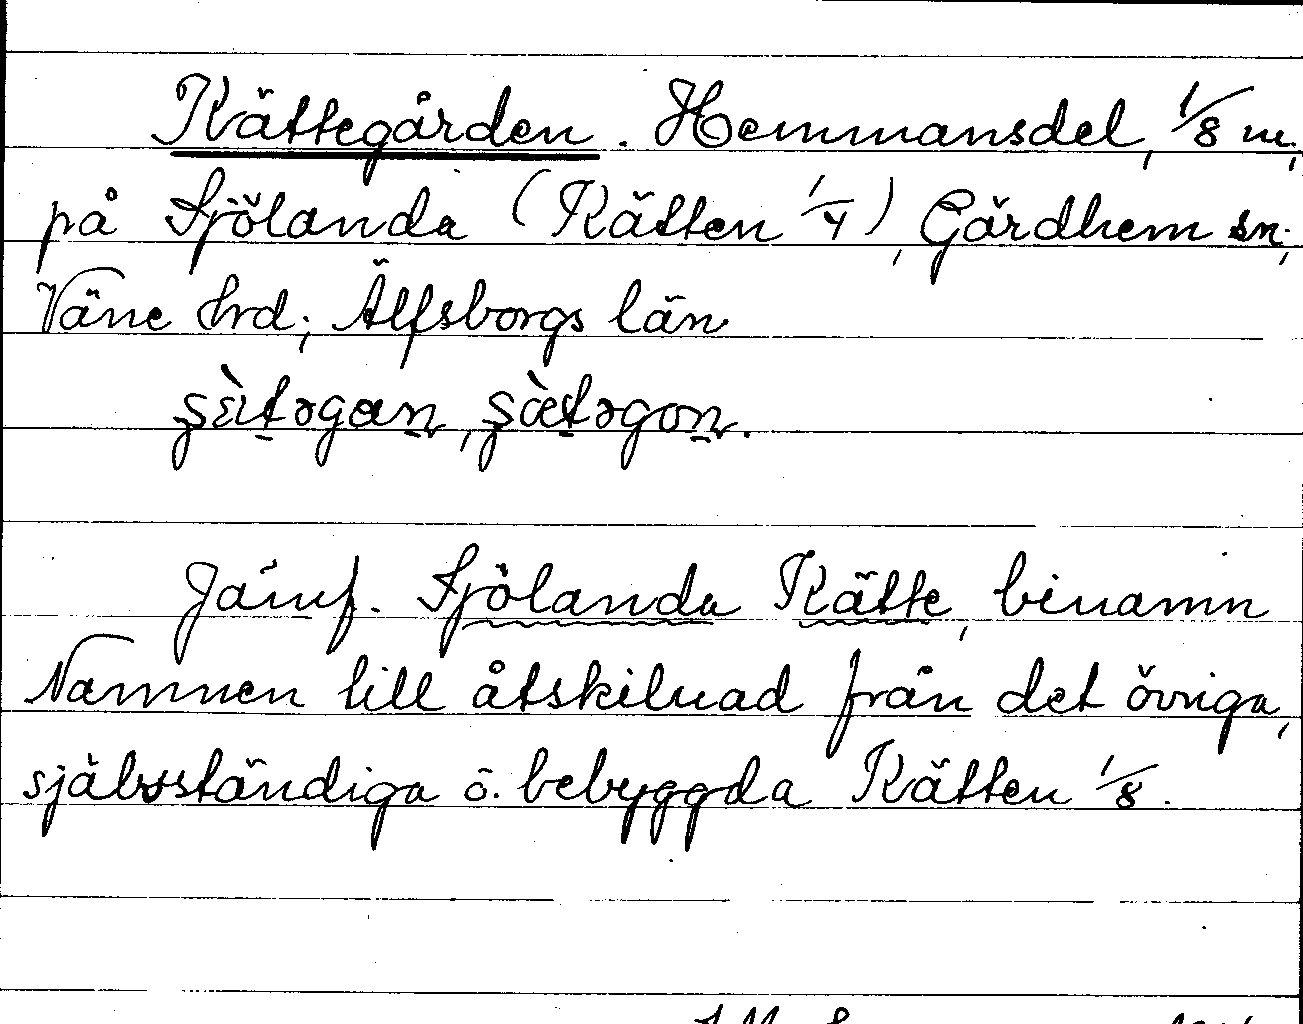 Kättegården. Hemmansdel, 1/8 m,
på Sjölanda (Kätten 1/4), Gärdhem sn;
Väne hrd; Älfsborgs län
Jämf. Sjölanda Kätte, binamn
Namnen till åtskilnad från det övriga,
självständiga o. bebyggda Kätten 1/8.